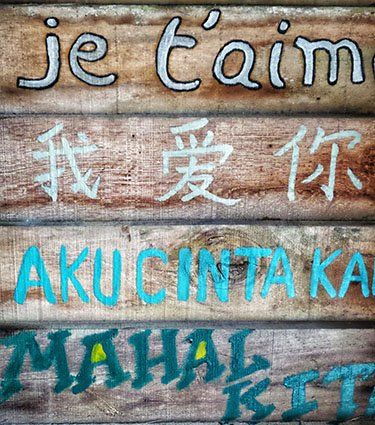 je t'aim
我爱你
AKU CINTA KA
MAHAL KITA